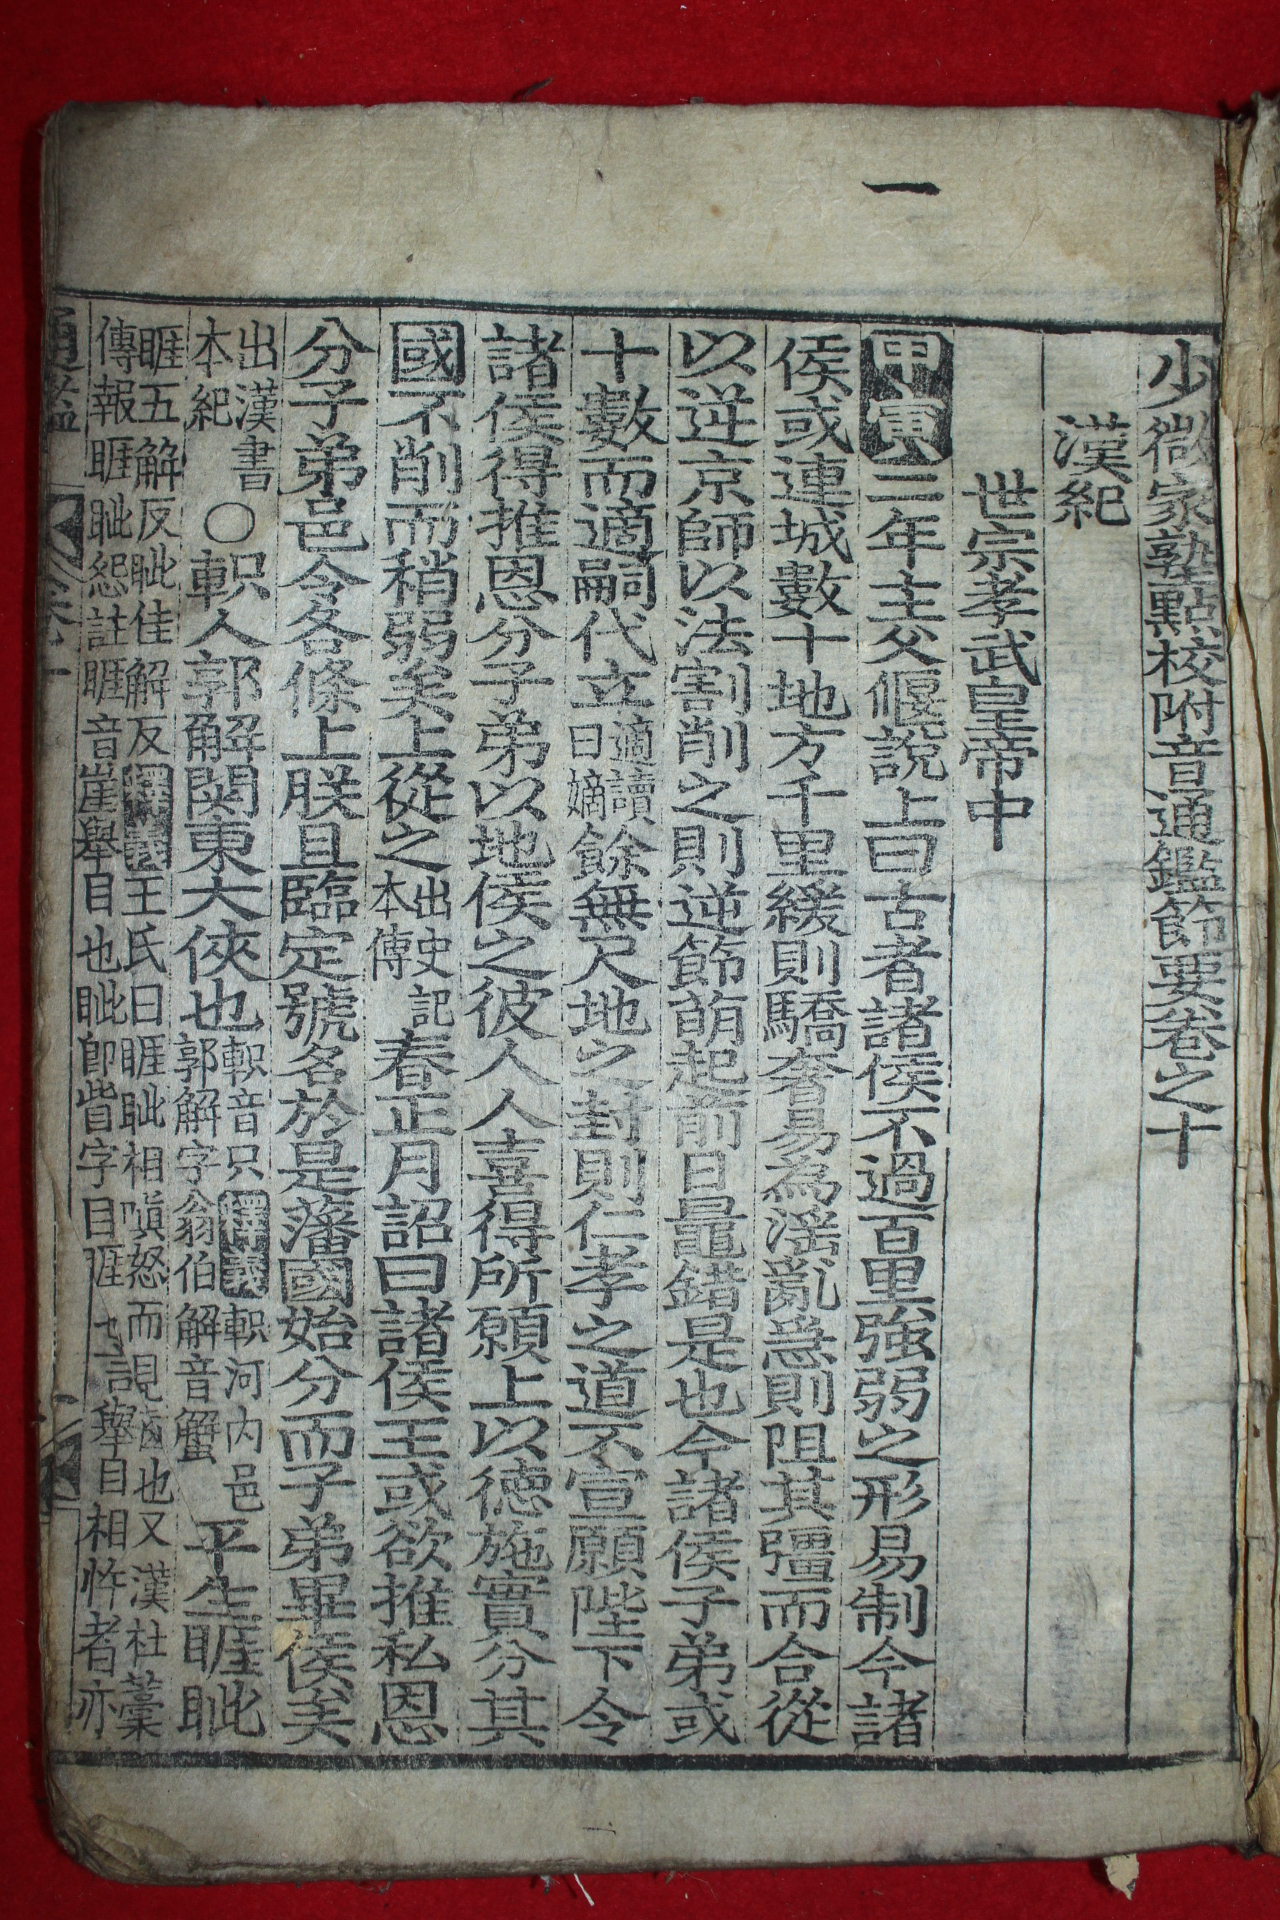 一
少微家塾點校附音通鑑節要卷之十
漢紀
世宗孝武皇帝中
甲寅二年主父偃說上曰古者諸侯不過百里強弱之形易制今諸
侯或連城數十地方千里緩則驕奢易為淫亂急則阻其彊而合從
以逆京師以法割削之則逆節萌起前日鼂錯是也今諸侯子弟或
十數而適嗣代立適讀曰嫡餘無尺地之封則仁孝之道不宣願陛下令
諸侯得推恩分子弟以地侯之彼人人喜得所願上以德施實分其
國不削而稍弱矣上從之出史記本傳春正月詔曰諸侯王或欲推私恩
分子弟邑令各條上朕且臨定號名於是藩國始分而子弟畢侯矣
出漢書本紀○軹人郭解関東大俠也軹音只釋義軹河內邑郭解字翁伯解音蟹平生睚眦
睚五解反眦佳解反釋義王氏曰睚眦相嗔怒而見齒也又漢杜藁
傳報睚眦怨註睚音崖舉目也眦即眥字目匡也言舉目相忤者亦
通鑑 卷十